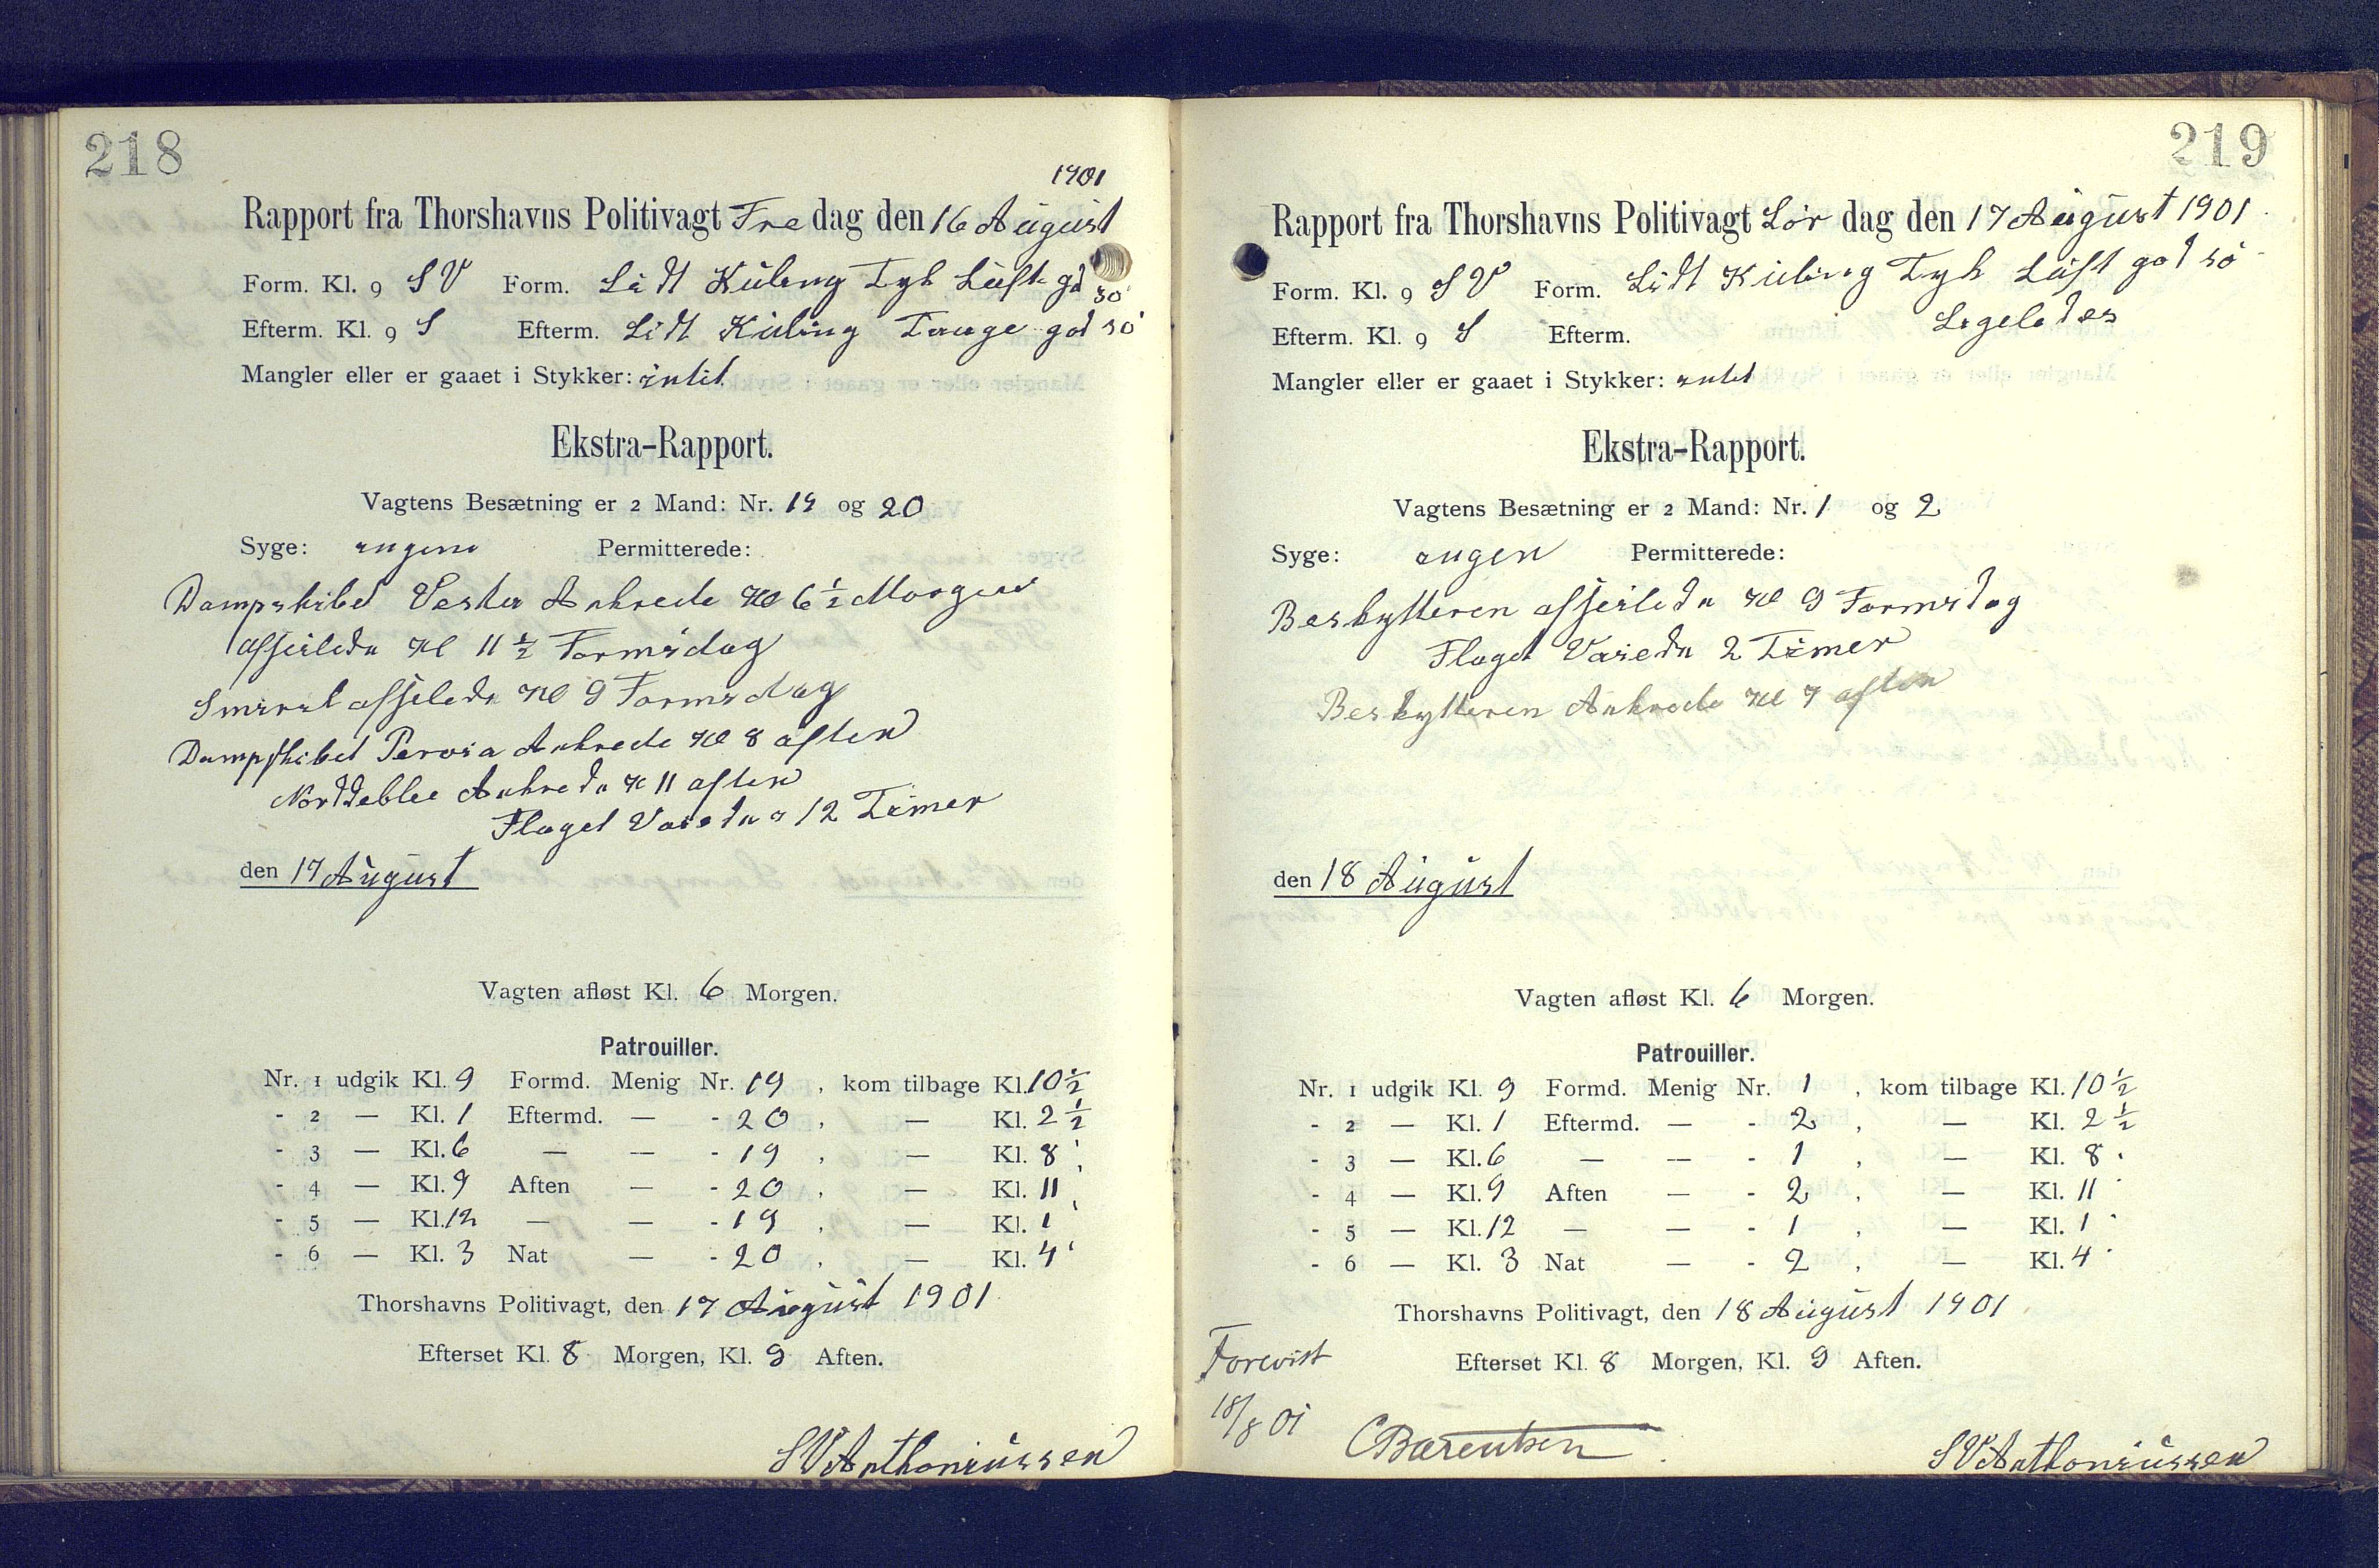 218
1901
Rapport fra Thorshavns Politivagt Fre dag den 16 August
Form. Kl. 9 SV Form. Lidt Kuling Tyk Luft gd sö
Efterm. Kl. 9 S Efterm. Lidt Kuling Tauge god sö
Mangler eller er gaaet i Stykker: intet
Ekstra-Rapport.
Vagtens Besætning er 2 Mand: Nr. 19 og 20
Syge: ingen Permitterede:
Dampskibet Vesta Ankrede Kl 6 ½ Morgen
afseilede Kl 11 ½ Formidag
Smiril afseilede Kl 9 Formidag
Dampskibet Perwia Ankrede Kl 8 aften
Norddeble Ankrede Kl 11 aften
Flaget Vaiede 12 Timer
den 17 August
Vagten afløst Kl. 6 Morgen.
Patrouiller.
Nr. 1 udgik Kl. 9 Formd. Menig Nr. 19 , kom tilbage Kl. 10 ½
- 2 — Kl. 1 Eftermd. — - 20 , — Kl. 2 ½
- 3 — Kl. 6 — — - 19 , — Kl. 8
- 4 — Kl. 9 Aften — - 20 , — Kl. 11
- 5 — Kl. 12 — — - 19 , — Kl. 1
- 6 — Kl. 3 Nat — - 20 , — Kl. 4
Thorshavns Politivagt, den 17 August 1901
Efterset Kl. 8 Morgen, Kl. 9 Aften.
SVAnthoniussen
219
Rapport fra Thorshavns Politivagt Lör dag den 17 August 1901
Form. Kl. 9 SV Form. Lidt Kuling Tyk Luft god sö
Efterm. Kl. 9 S Efterm. Ligeledes
Mangler eller er gaaet i Stykker: intet
Ekstra-Rapport.
Vagtens Besætning er 2 Mand: Nr. 1 og 2
Syge: ingen Permitterede:
Beskytteren afseilede Kl 9 Formidag
Flaget Vaiede 2 Timer
Beskytteren Ankrede Kl 7 aften
den 18 August
Vagten afløst Kl. 6 Morgen.
Patrouiller.
Nr. 1 udgik Kl. 9 Formd. Menig Nr. 1 , kom tilbage Kl. 10 ½
- 2 — Kl. 1 Eftermd. — - 2 , — Kl. 2 ½
- 3 — Kl. 6 — — - 1 , — Kl. 8
- 4 — Kl. 9 Aften — - 2 , — Kl. 11
- 5 — Kl. 12 — — - 1 , — Kl. 1
- 6 — Kl. 3 Nat — - 2 , — Kl. 4
Thorshavns Politivagt, den 18 August 1901
Forevist
Efterset Kl. 8 Morgen, Kl. 9 Aften.
18/8 01
CBærentsen
SVAnthoniussen